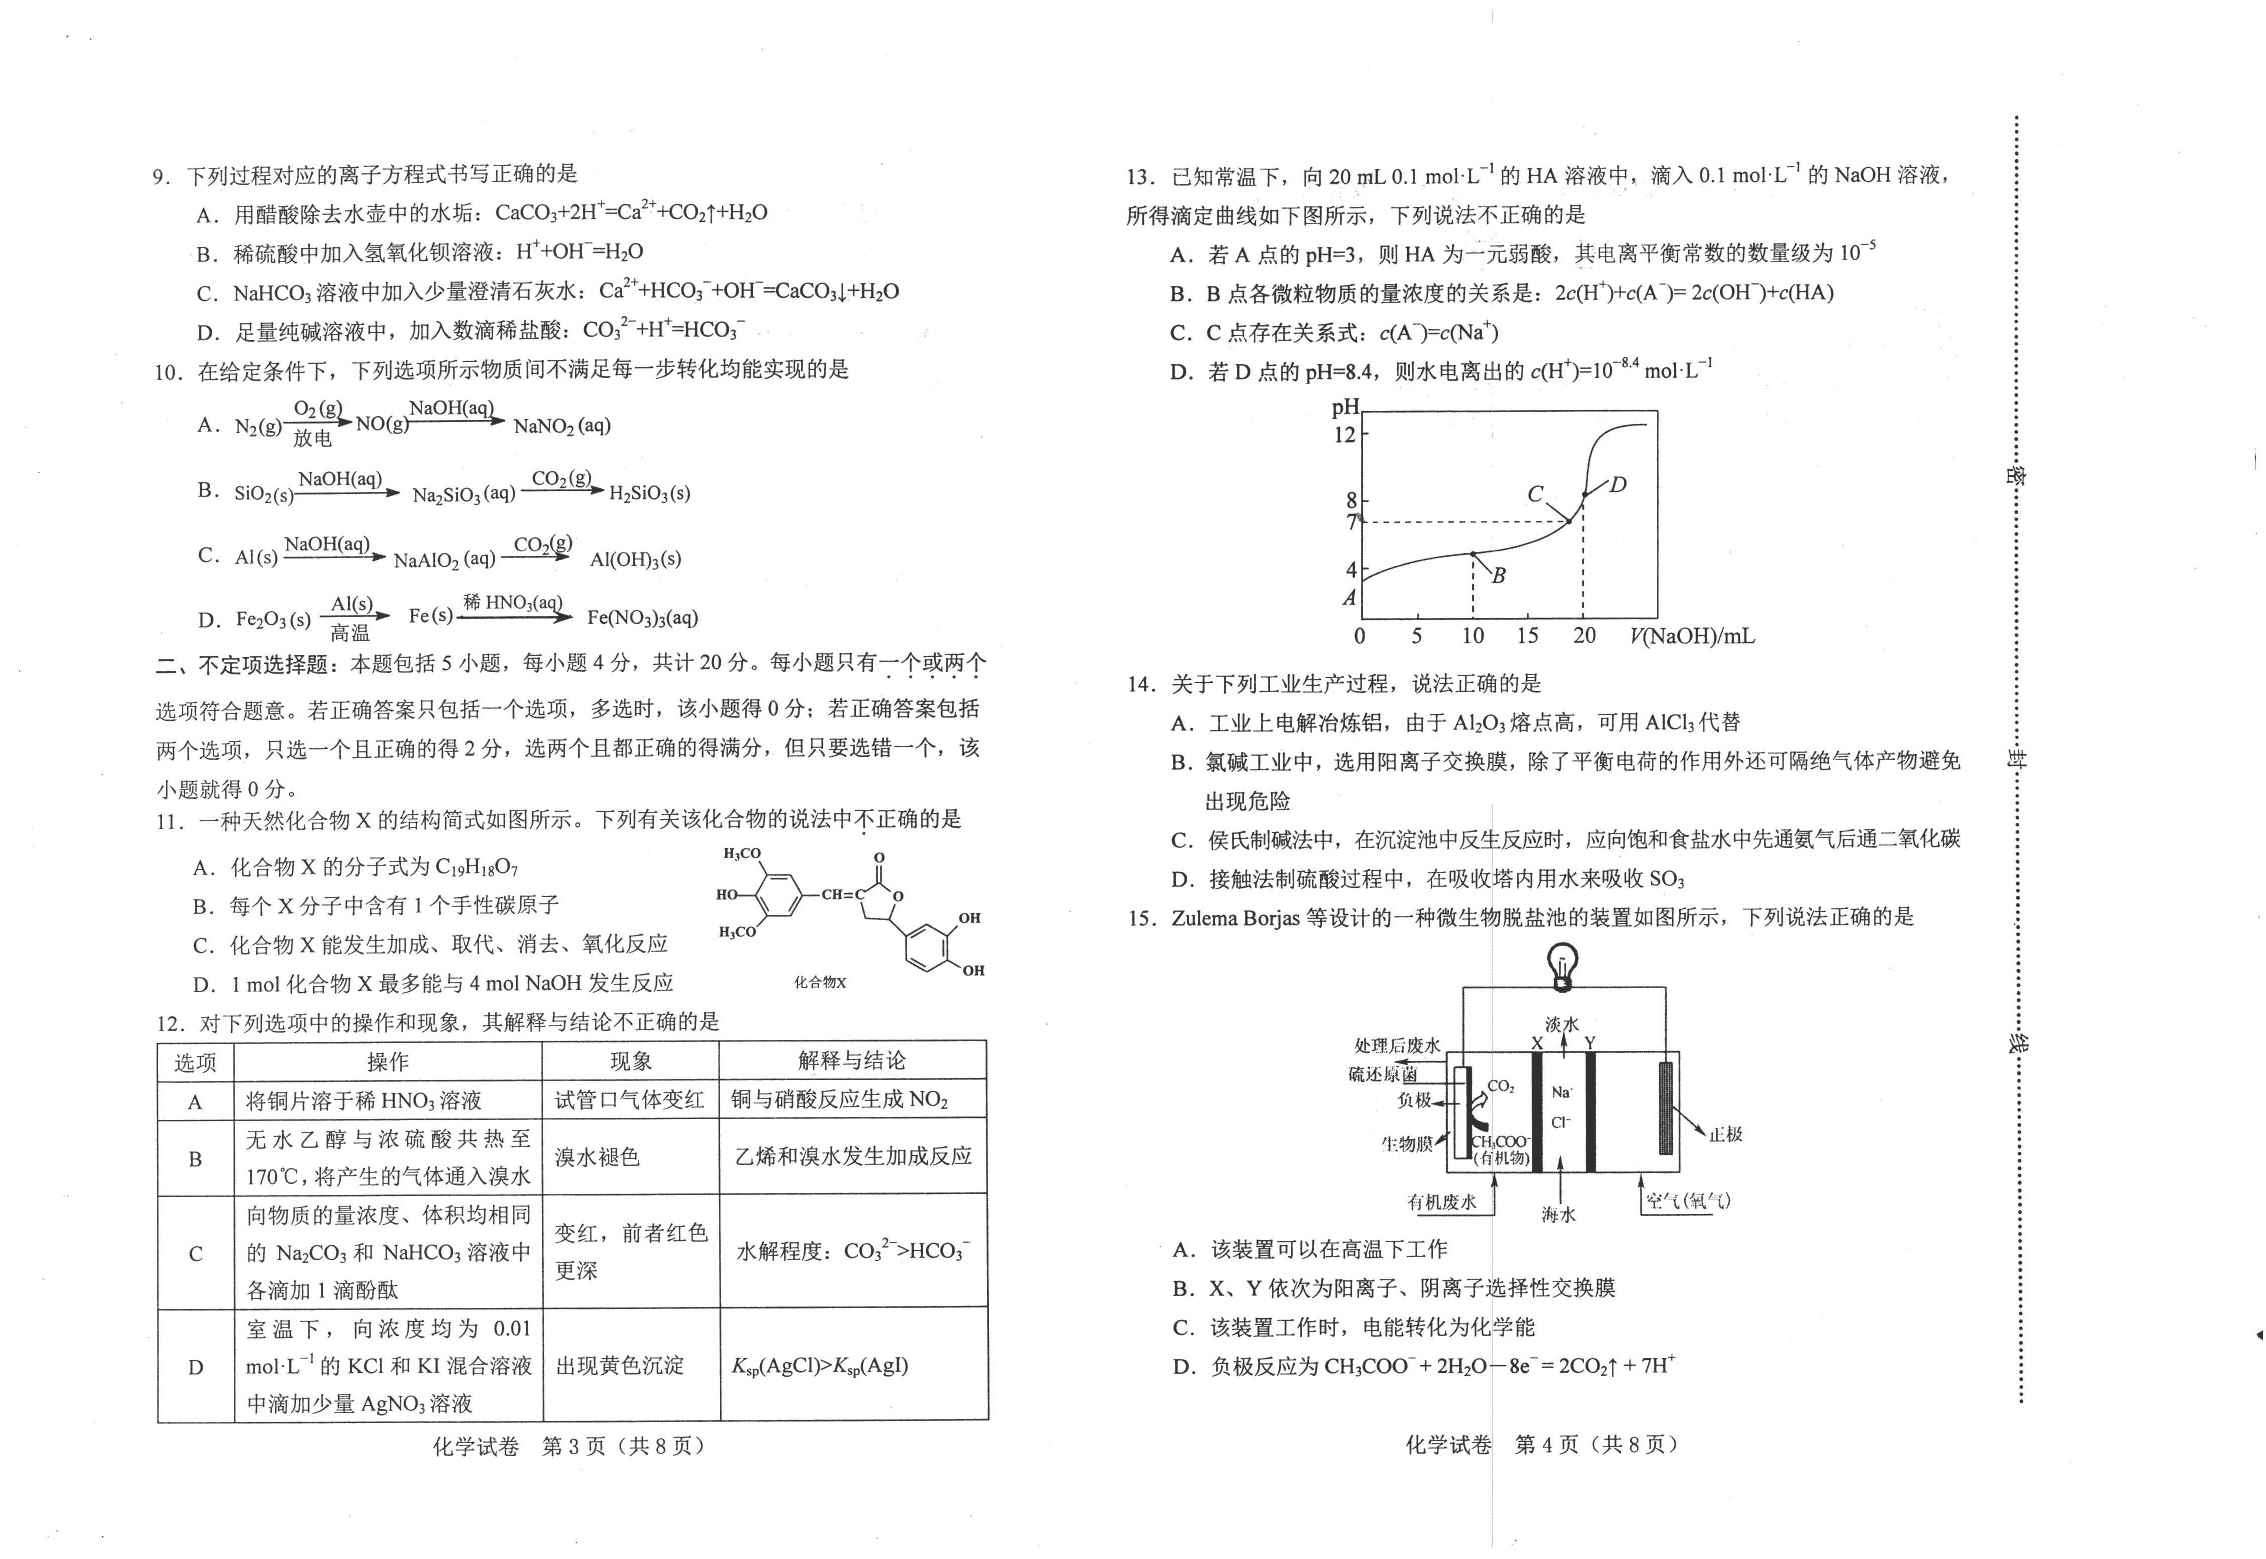 9．下列过程对应的离子方程式书写正确的是
A．用醋酸除去水壶中的水垢：CaCO₃+2H⁺=Ca²⁺+CO₂↑+H₂O
B．稀硫酸中加入氢氧化钡溶液：H⁺+OH⁻=H₂O
C．NaHCO₃溶液中加入少量澄清石灰水：Ca²⁺+HCO₃⁻+OH⁻=CaCO₃↓+H₂O
D．足量纯碱溶液中，加入数滴稀盐酸：CO₃²⁻+H⁺=HCO₃⁻
10．在给定条件下，下列选项所示物质间不满足每一步转化均能实现的是
O₂(g) NaOH(aq)
A．N₂(g) → NO(g) → NaNO₂(aq)
放电
NaOH(aq) CO₂(g)
B．SiO₂(s) → Na₂SiO₃(aq) → H₂SiO₃(s)
NaOH(aq) CO₂(g)
C．Al(s) → NaAlO₂(aq) → Al(OH)₃(s)
Al(s) 稀 HNO₃(aq)
D．Fe₂O₃(s) → Fe(s) → Fe(NO₃)₃(aq)
高温
二、不定项选择题：本题包括5小题，每小题4分，共计20分。每小题只有一个或两个
选项符合题意。若正确答案只包括一个选项，多选时，该小题得0分；若正确答案包括
两个选项，只选一个且正确的得2分，选两个且都正确的得满分，但只要选错一个，该
小题就得0分。
11．一种天然化合物X的结构简式如图所示。下列有关该化合物的说法中不正确的是
A．化合物X的分子式为C₁₉H₁₈O₇
B．每个X分子中含有1个手性碳原子
C．化合物X能发生加成、取代、消去、氧化反应
D．1 mol化合物X最多能与4 mol NaOH发生反应
H₃CO
HO
H₃CO
CH=
O
O
OH
OH
化合物X
12．对下列选项中的操作和现象，其解释与结论不正确的是
选项 操作 现象 解释与结论
A 将铜片溶于稀HNO₃溶液 试管口气体变红 铜与硝酸反应生成NO₂
B 无水乙醇与浓硫酸共热至
170℃，将产生的气体通入溴水 溴水褪色 乙烯和溴水发生加成反应
C 向物质的量浓度、体积均相同
的Na₂CO₃和NaHCO₃溶液中
各滴加1滴酚酞 变红，前者红色
更深 水解程度：CO₃²⁻>HCO₃⁻
D 室温下，向浓度均为0.01
mol·L⁻¹的KCl和KI混合溶液
中滴加少量AgNO₃溶液 出现黄色沉淀 Ksp(AgCl)>Ksp(AgI)
化学试卷 第3页（共8页）
13．已知常温下，向20 mL 0.1 mol·L⁻¹的HA溶液中，滴入0.1 mol·L⁻¹的NaOH溶液，
所得滴定曲线如下图所示，下列说法不正确的是
A．若A点的pH=3，则HA为一元弱酸，其电离平衡常数的数量级为10⁻⁵
B．B点各微粒物质的量浓度的关系是：2c(H⁺)+c(A⁻)= 2c(OH⁻)+c(HA)
C．C点存在关系式：c(A⁻)=c(Na⁺)
D．若D点的pH=8.4，则水电离出的c(H⁺)=10⁻⁸·⁴ mol·L⁻¹
pH
12
8
7
4
A
B
C
D
0 5 10 15 20 V(NaOH)/mL
14．关于下列工业生产过程，说法正确的是
A．工业上电解冶炼铝，由于Al₂O₃熔点高，可用AlCl₃代替
B．氯碱工业中，选用阳离子交换膜，除了平衡电荷的作用外还可隔绝气体产物避免
出现危险
C．侯氏制碱法中，在沉淀池中反生反应时，应向饱和食盐水中先通氨气后通二氧化碳
D．接触法制硫酸过程中，在吸收塔内用水来吸收SO₃
15．Zulema Borjas等设计的一种微生物脱盐池的装置如图所示，下列说法正确的是
淡水
处理后废水
X Y
硫还原菌
CO₂
负极
Na⁺
Cl⁻
正极
生物膜
CH₃COO⁻
(有机物)
有机废水
海水
空气(氧气)
A．该装置可以在高温下工作
B．X、Y依次为阳离子、阴离子选择性交换膜
C．该装置工作时，电能转化为化学能
D．负极反应为CH₃COO⁻ + 2H₂O－8e⁻ = 2CO₂↑ + 7H⁺
化学试卷 第4页（共8页）
密
封
线